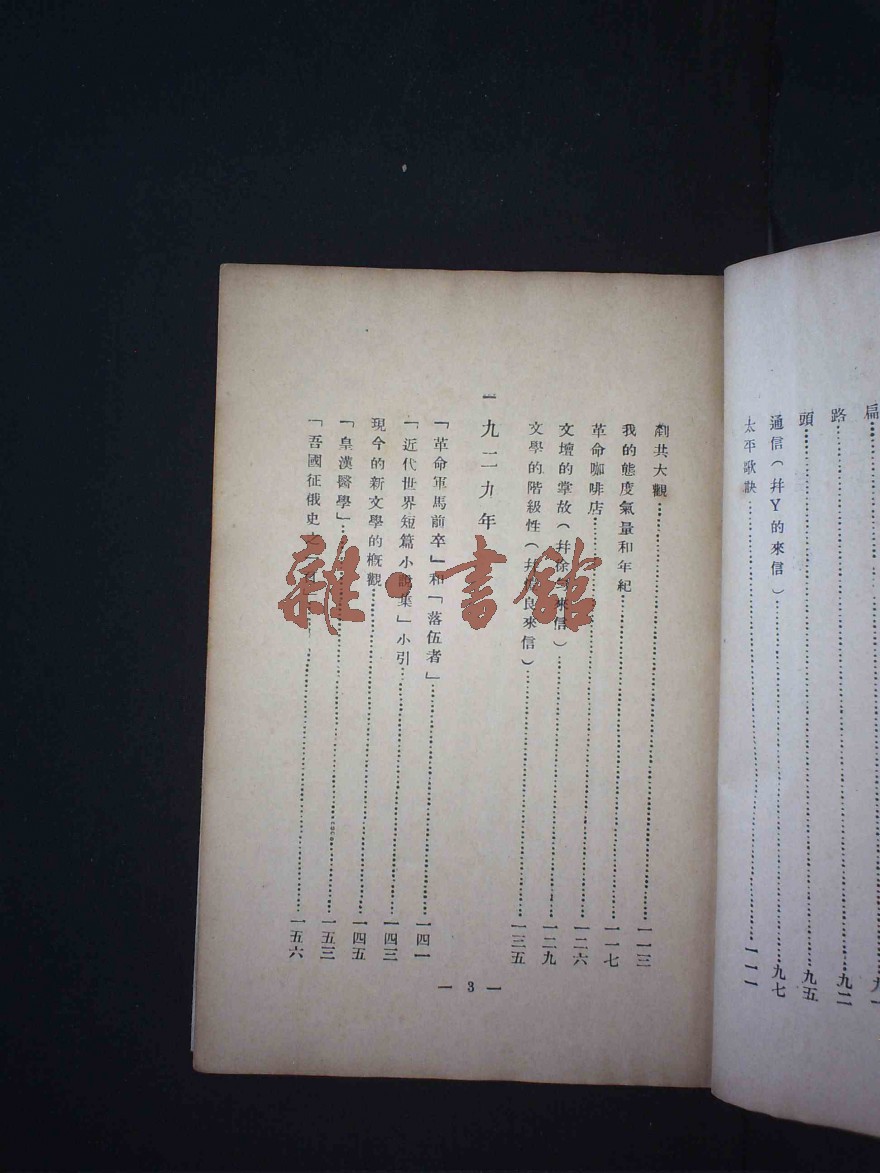 扁……九一
路……九二
頭……九五
通信(幷Y的來信)……九七
太平歌訣……一一一
剷共大觀……一一三
我的態度氣量和年紀……一一七
革命咖啡店……一二六
文壇的掌故(幷徐勻來信)……一二九
文學的階級性(幷愷良來信)……一三五
一九二九年
「革命軍馬前卒」和「落伍者」……一四一
「近代世界短篇小說集」小引……一四三
現今的新文學的概觀……一四五
「皇漢醫學」……一五三
「吾國征俄史之一頁」……一五六
— 3 —
雜·書館